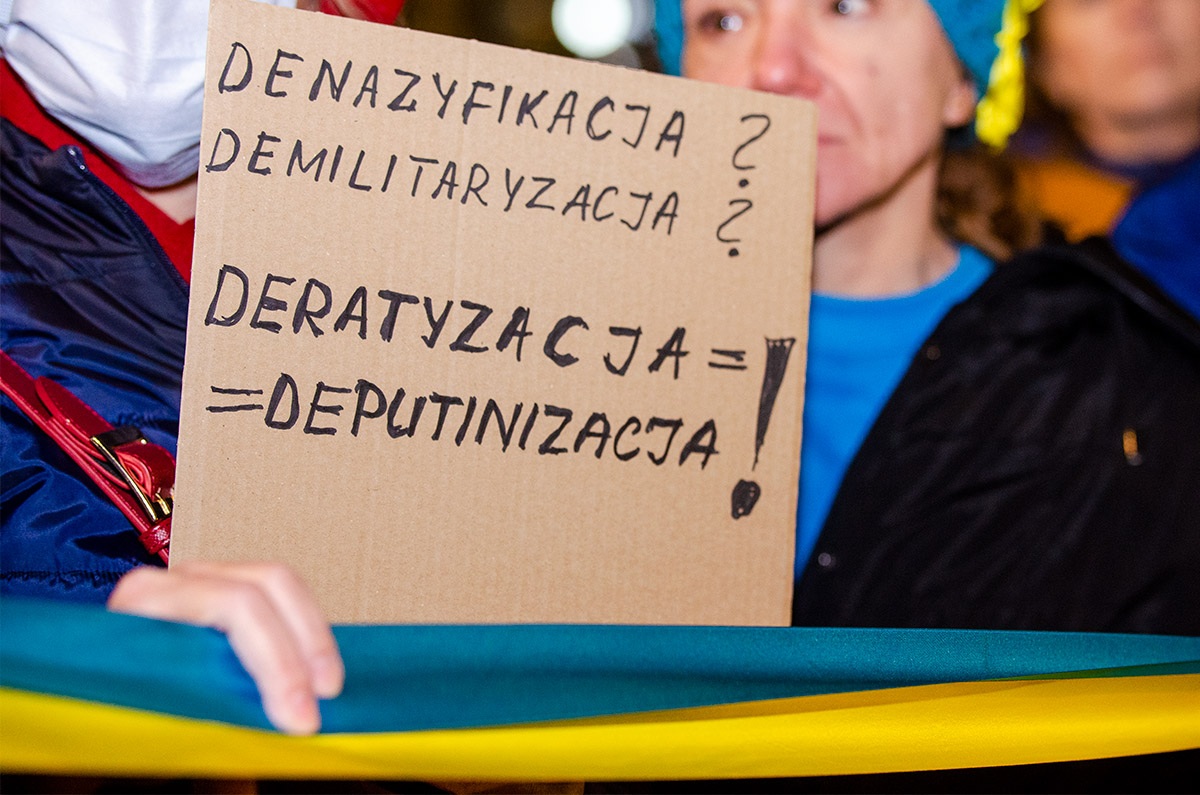 DENAZYFIKACJA ?
DEMILITARYZACJA ?
DERATYZACJA =
=DEPUTINIZACJA !